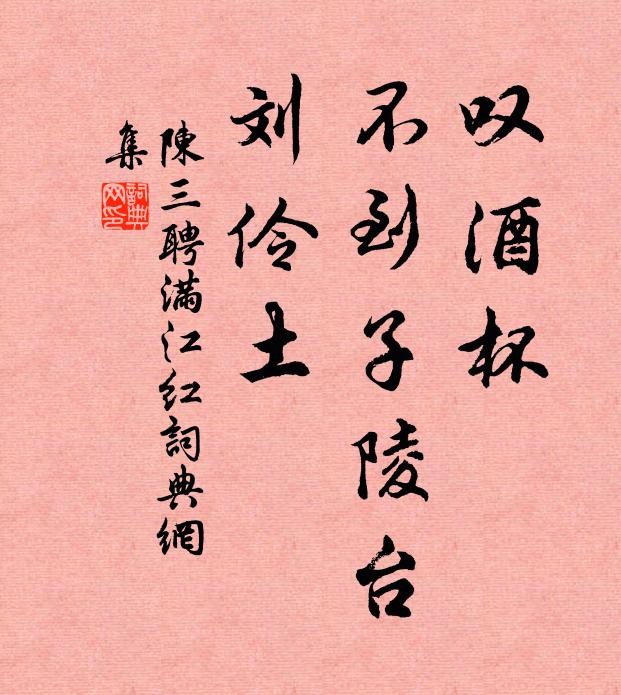 叹酒杯
不到子陵台
刘伶土
陳三聘满江红詞典網
集
詞典
网印